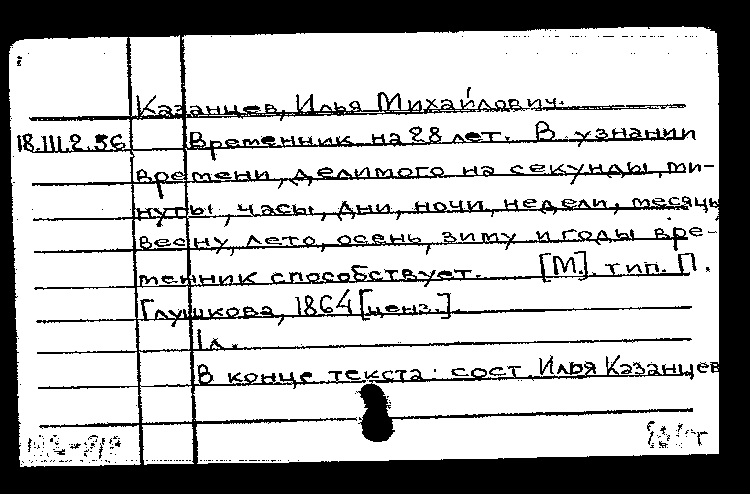 Казанцев, Илья Михайлович.
18.III.2.56 Временник на 28 лет. В узнании
времени, делимого на секунды, ми-
нуты, часы, дни, ночи, недели, месяцы
весну, лето, осень, зиму и годы вре-
менник способствует. [М]. тип. П.
Глушкова, 1864 [ценз.].
1 л.
В конце текста: сост. Илья Казанцев